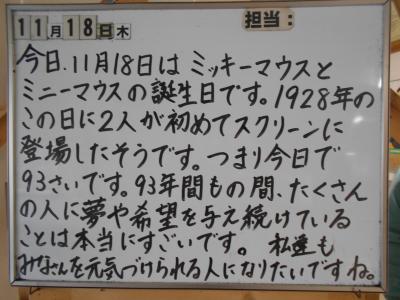 11月18日木 担当:
今日、11月18日は ミッキーマウスと
ミニーマウスの誕生日です。1928年の
この日に2人が初めてスクリーンに
登場したそうです。つまり今日で
93さいです。93年間もの間、たくさん
の人に夢や希望を与え続けている
ことは本当にすごいです。 私達も
みなさんを元気づけられる人になりたいですね。